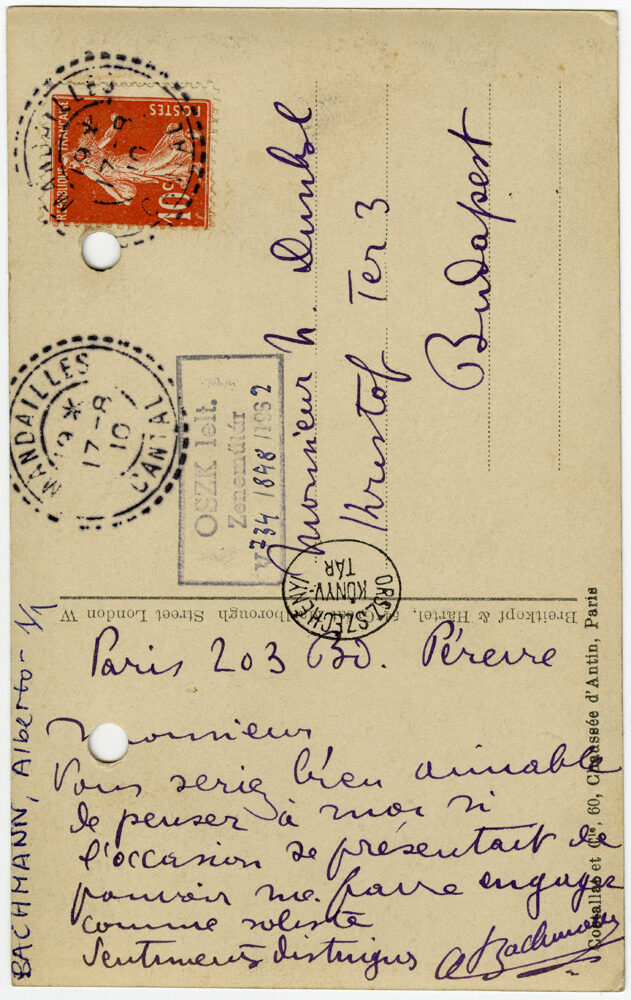 POSTES
REPUBLIQUE FRANÇAISE
10 c
MANDAILLES
17-8
10
CANTAL
MANDAILLES
19 *
17-8
10
CANTAL
OSZK lelt.
Zeneműtár
734/1848/1962
Monsieur N. Dunkl
Kristof Ter 3
Budapest
ORSZ. SZÉCHÉNYI
KÖNYV-
TÁR
Breitkopf & Härtel, 54 Great Marlborough Street London W
Costallat et Cie, 60, Chaussée d'Antin, Paris
BACHMANN, Alberto - 1/1
Paris 203 Bd. Péreire
Monsieur
Vous seriez bien aimable
de penser à moi si
l'occasion se présentait de
pouvoir me faire engager
comme soliste
Sentiments distingués
A Bachmann